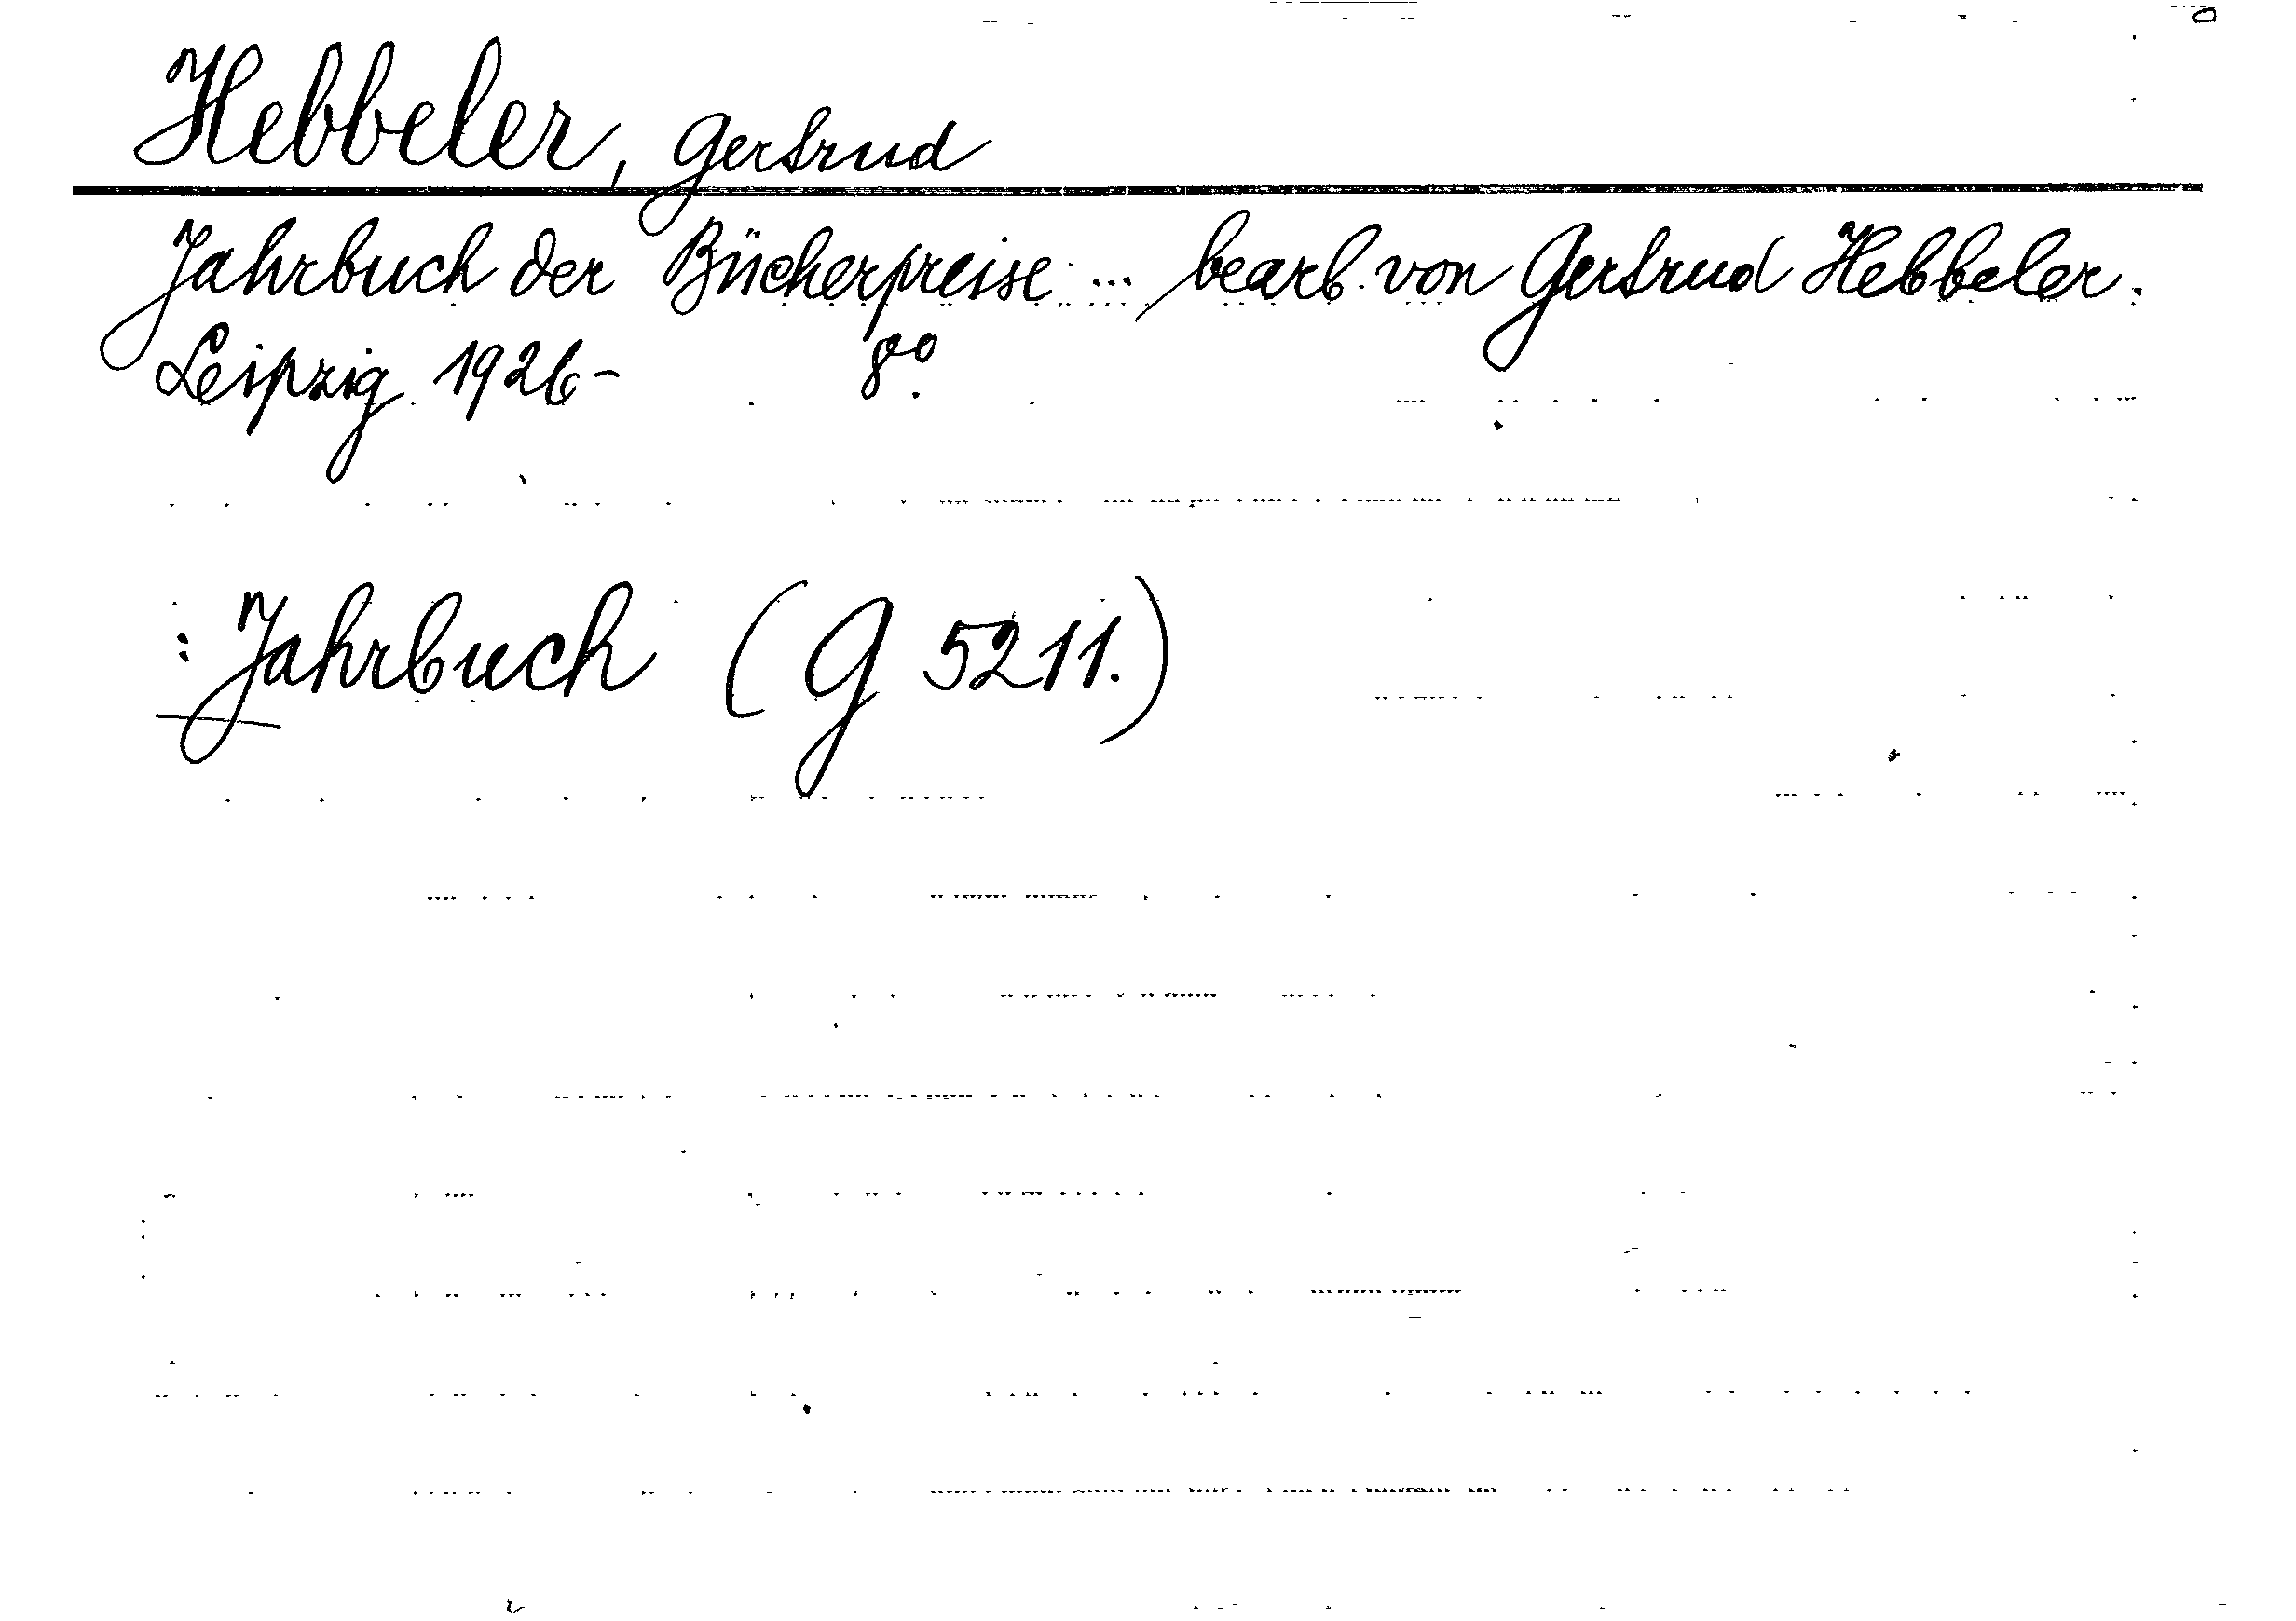 Hebbeler, Gertrud
Jahrbuch der Bücherpreise ... bearb. von Gertrud Hebbeler.
Leipzig 1926- 8°.
: Jahrbuch (G 5211.)